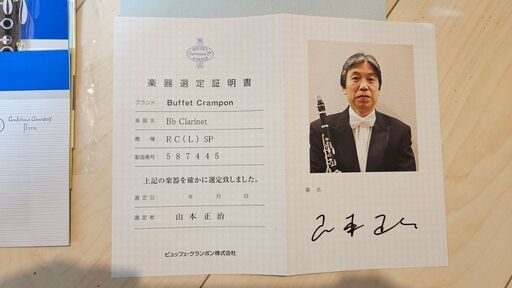 BUFFET
Crampon & Cie
A PARIS
楽器選定証明書
ブランド: Buffet Crampon
楽器名: Bb Clarinet
機種: RC(L) SP
製造番号: 587445
上記の楽器を確かに選定致しました。
選定日: 年 月 日
選定者: 山本正治
ビュッフェ・クランポン株式会社
署名
Paris